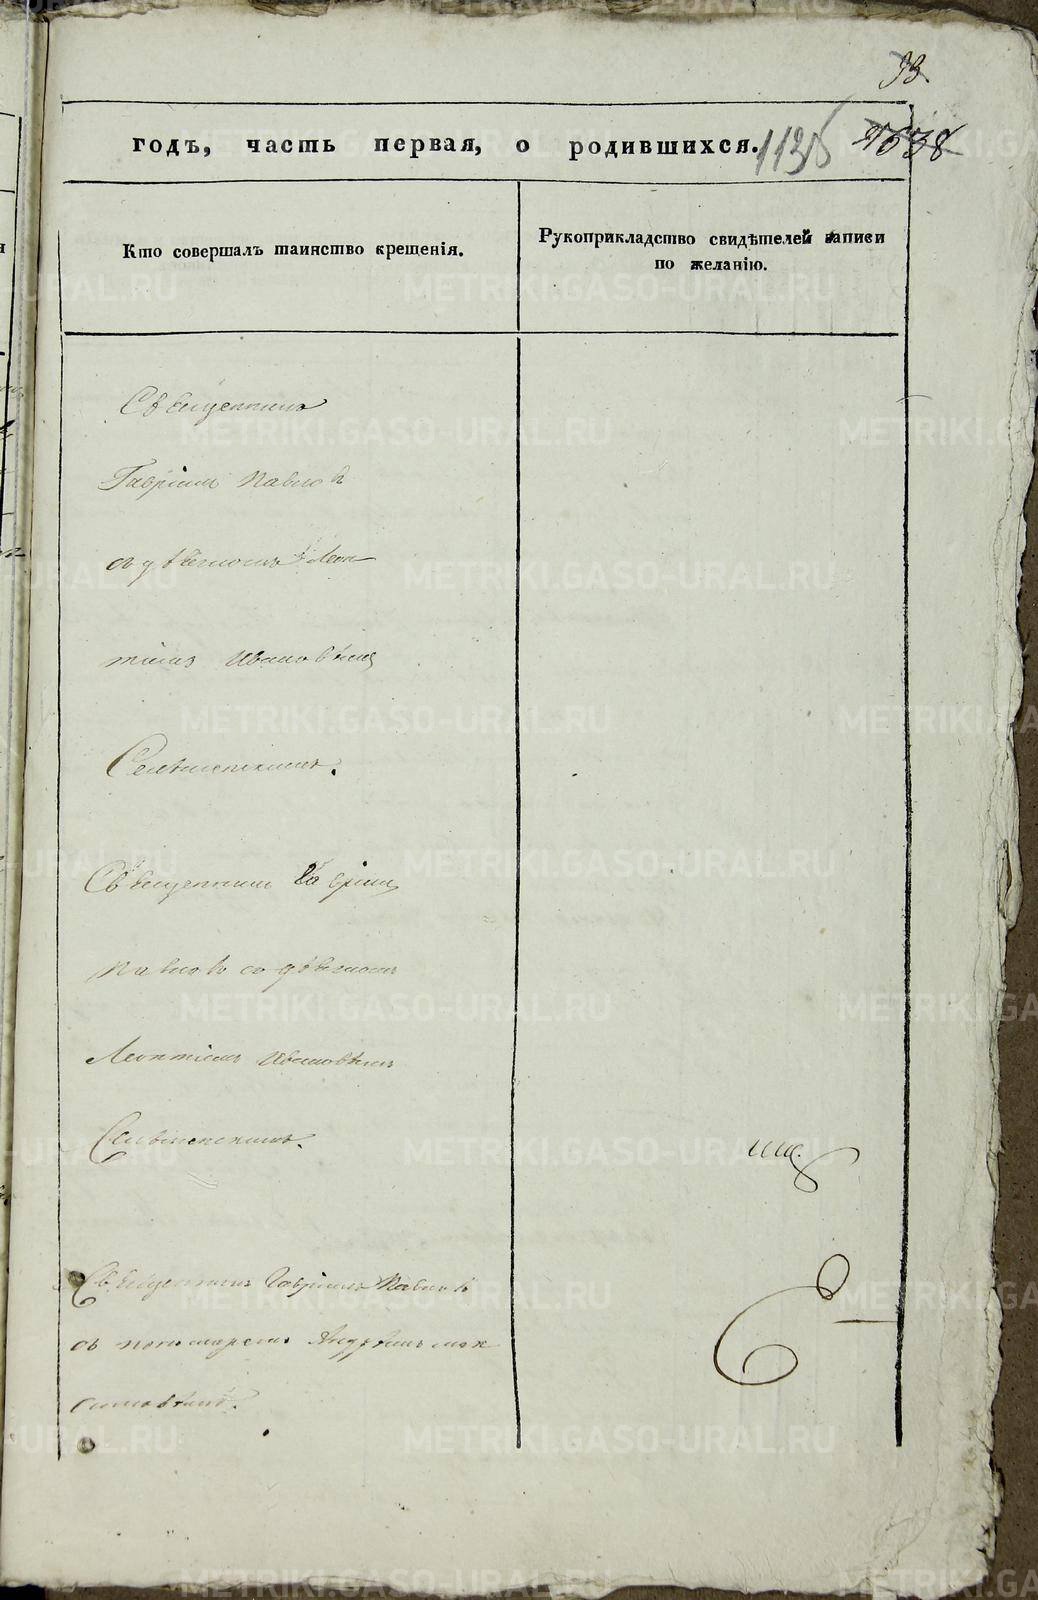 93.
годъ, часть первая, о родившихся.
1135 1638
Кто совершалъ таинство крещенія.
Рукоприкладство свидѣтелей записи
по желанію.
Священникъ
Гавріилъ Павловъ
съ дьячкомъ Леон
тіемъ Ивановымъ
Священникъ Гавріилъ
Павловъ съ дьячкомъ
Леонтіемъ Ивановымъ
Священникъ Гавріилъ Павловъ
съ пономаремъ Андреемъ Мак
симовымъ.
METRIKI.GASO-URAL.RU